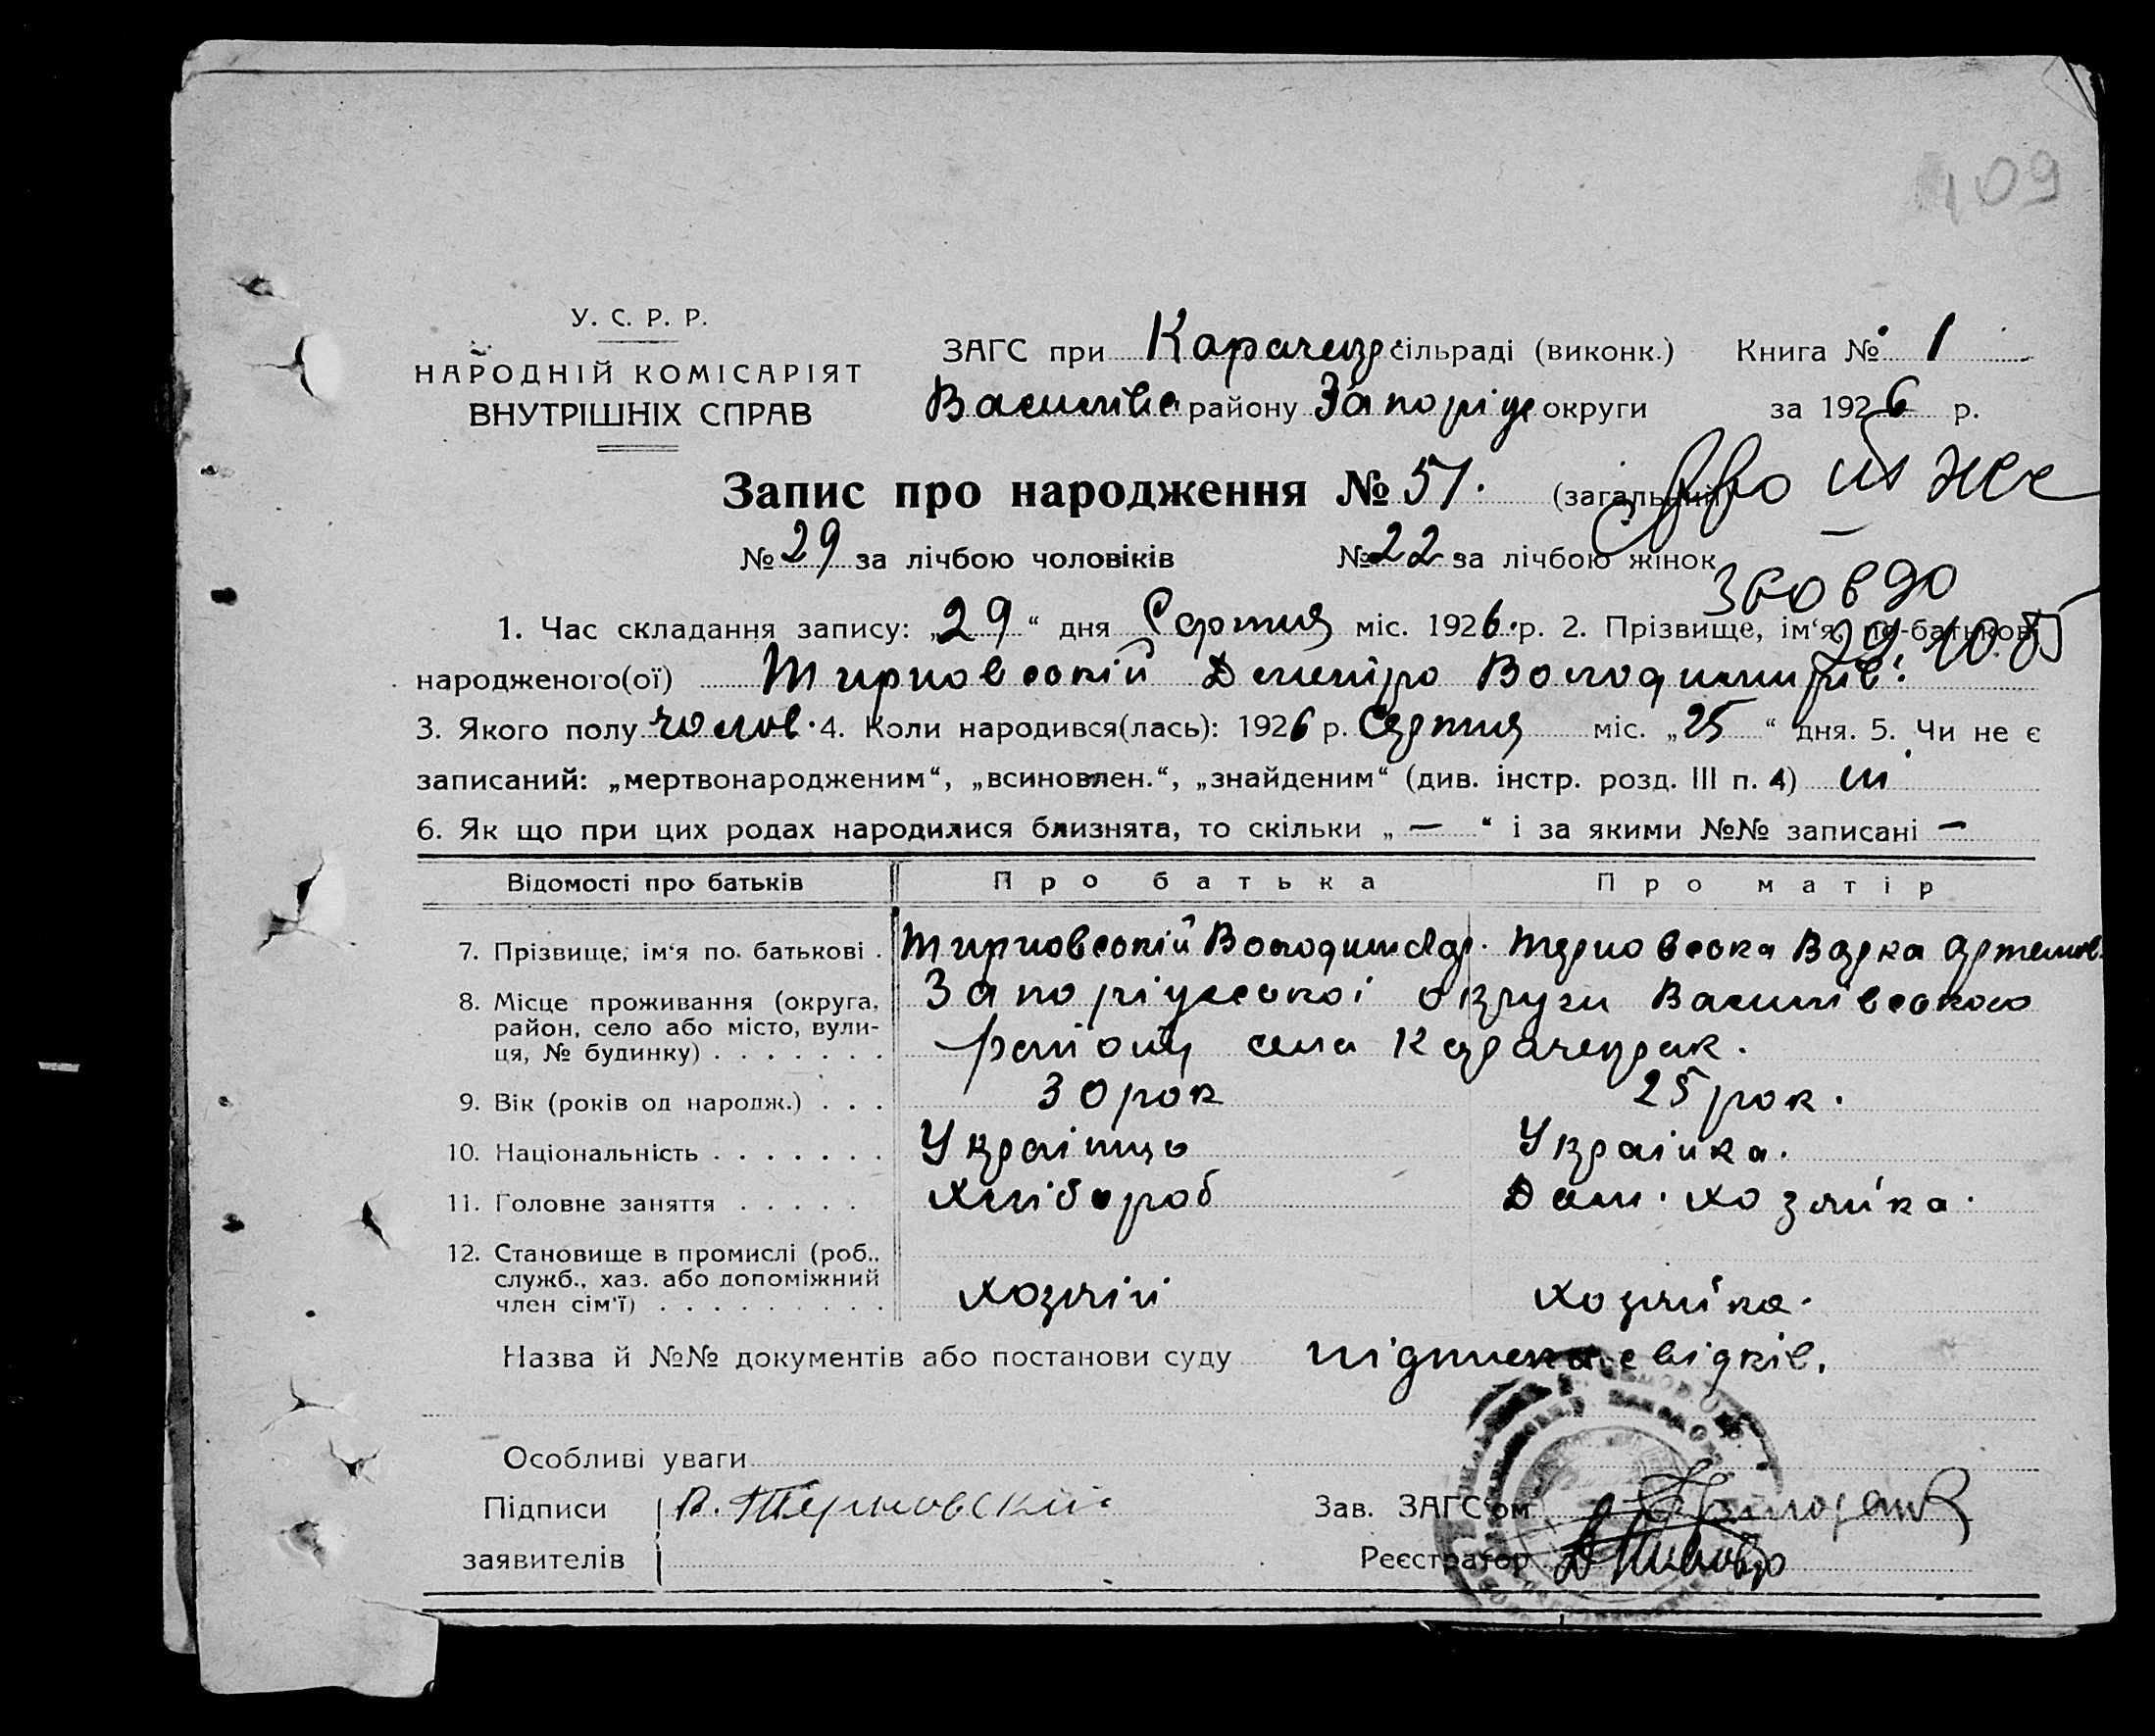 109
У. С. Р. Р.
НАРОДНІЙ КОМІСАРІЯТ
ВНУТРІШНІХ СПРАВ
ЗАГС при Карачекр сільраді (виконк.) Книга № 1
Василівс району Запоріж округи за 1926 р.
Запис про народження № 51. (загальний)
№ 29 за лічбою чоловіків № 22 за лічбою жінок
1. Час складання запису: „29“ дня Серпня міс. 1926 р. 2. Прізвище, ім‘я, по-батькові
29.10.85
народженого(ої) Тирновський Дмитро Володимирів.
3. Якого полу чолов. 4. Коли народився(лась): 1926 р. Серпня міс. „25“ дня. 5. Чи не є
записаний: „мертвонародженим“, „всиновлен.“, „знайденим“ (див. інстр. розд. III п. 4) ні
6. Як що при цих родах народилися близнята, то скільки „ — “ і за якими №№ записані —
Відомості про батьків Про батька Про матір
7. Прізвище, ім‘я по. батькові . Тирновський Терновська Варка Артемов.
8. Місце проживання (округа, район, село або місто, вулиця, № будинку) . . . . . . . Запоріжської округи Василівського
району села Карачекрак.
9. Вік (років од народж.) . . . 30 рок 25 рок.
10. Національність . . . . . . . Українць Українка.
11. Головне заняття . . . . . Хлібороб Дом. хозяйка.
12. Становище в промислі (роб., служб., хаз. або допоміжний член сім‘ї) . . . . . . . . . хозяїн хозяйка.
Назва й №№ документів або постанови суду підписка свідків.
Особливі уваги
Підписи В. Терновский Зав. ЗАГС‘ом
заявителів Реєстратор